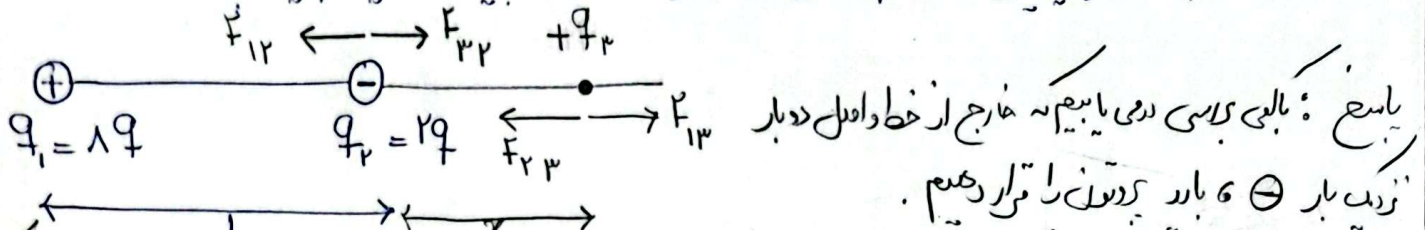 F₁₂ F₃₂ +q₃
+ −
q₁ = ۸q q₂ = ۲q F₂₃ F₁₃
پاسخ : باکمی بررسی درمی یابیم که خارج از خط واصل دو بار
نزدیک بار ⊖ باید پروتون را قرار دهیم .